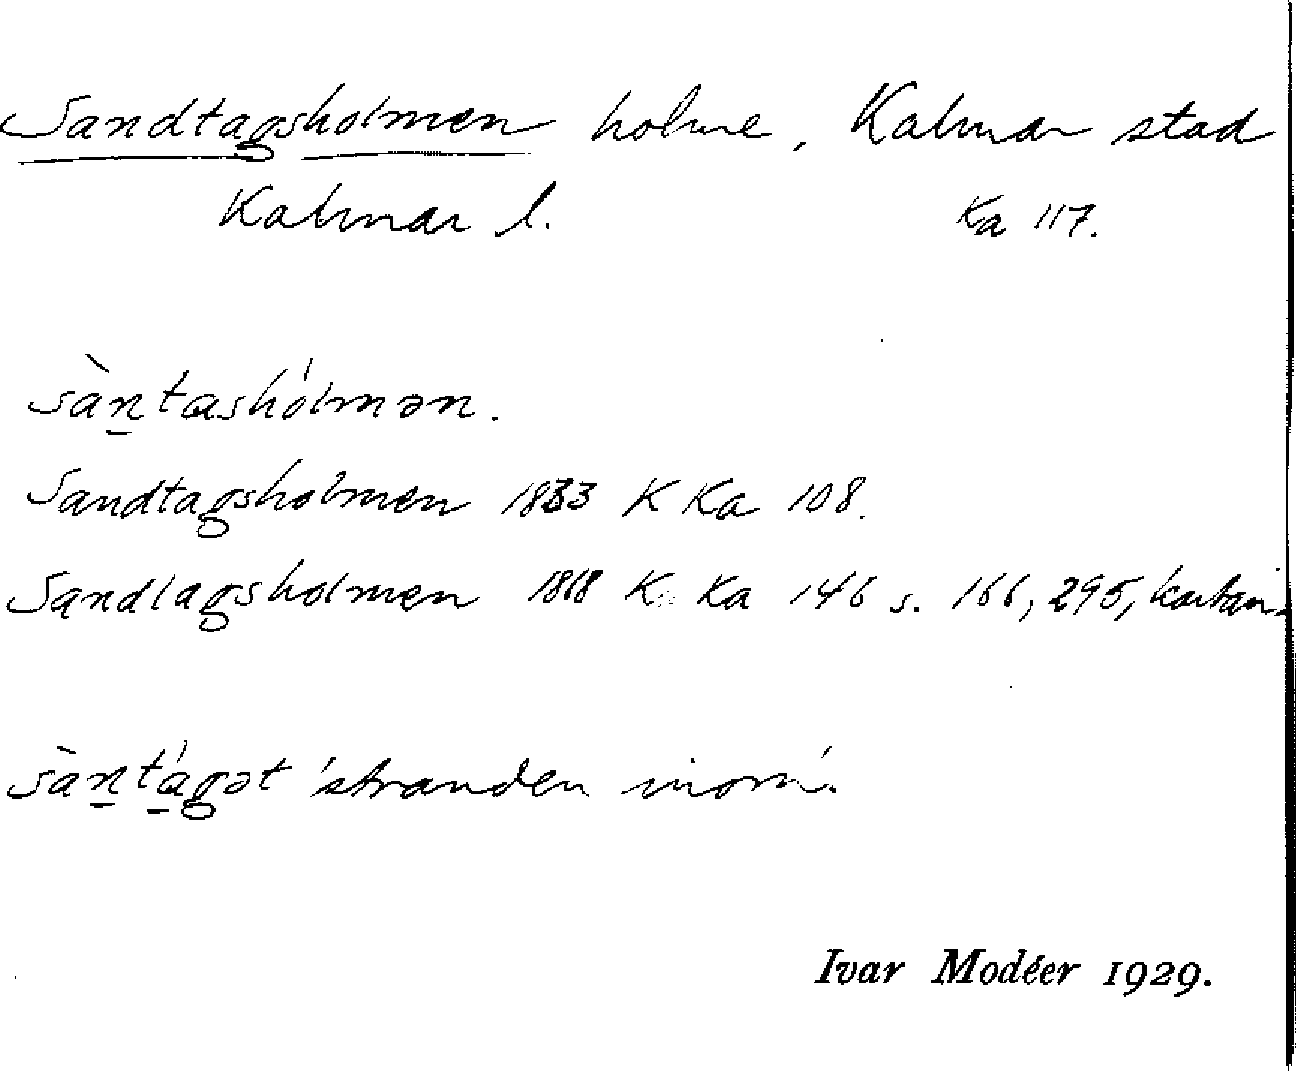 Sandtagsholmen holme, Kalmar stad
Kalmar l. Ka 117.
sàn̠tashólmən.
Sandtagsholmen 1833 K Ka 108.
Sandtagsholmen 1818 K. Ka 146 s. 166, 295, kartan.
sàn̠tá̠gət 'stranden inom'.
Ivar Modéer 1929.